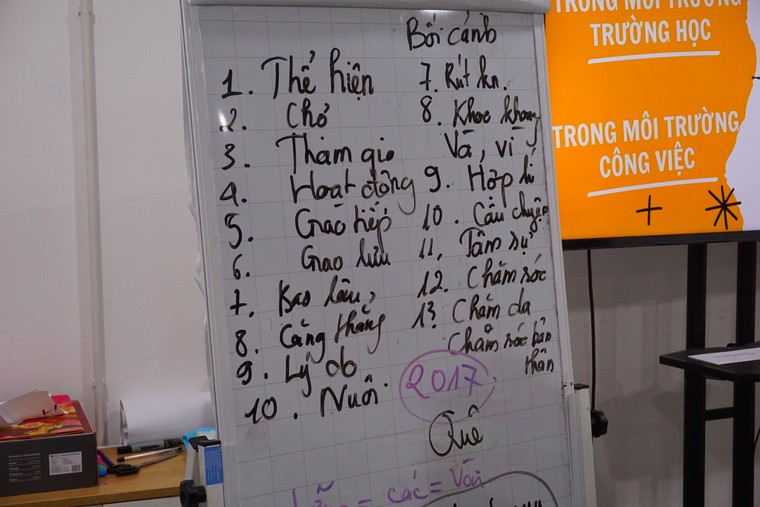 Bối cảnh
1. Thể hiện
2. Chở
3. Tham gia
4. Hoạt động
5. Giao tiếp
6. Giao lưu
7. Bao lâu,
8. Căng thẳng
9. Lý do
10. Nuôi
7. Rút kn.
8. Khoe khang
Và, vì
9. Hợp lí
10. Câu chuyện
11. Tâm sự
12. Chăm sóc
13. Chăm da
Chăm sóc bản
thân
2017
Quê
= các = vẫn
TRONG MÔI TRƯỜNG
TRƯỜNG HỌC
TRONG MÔI TRƯỜNG
CÔNG VIỆC